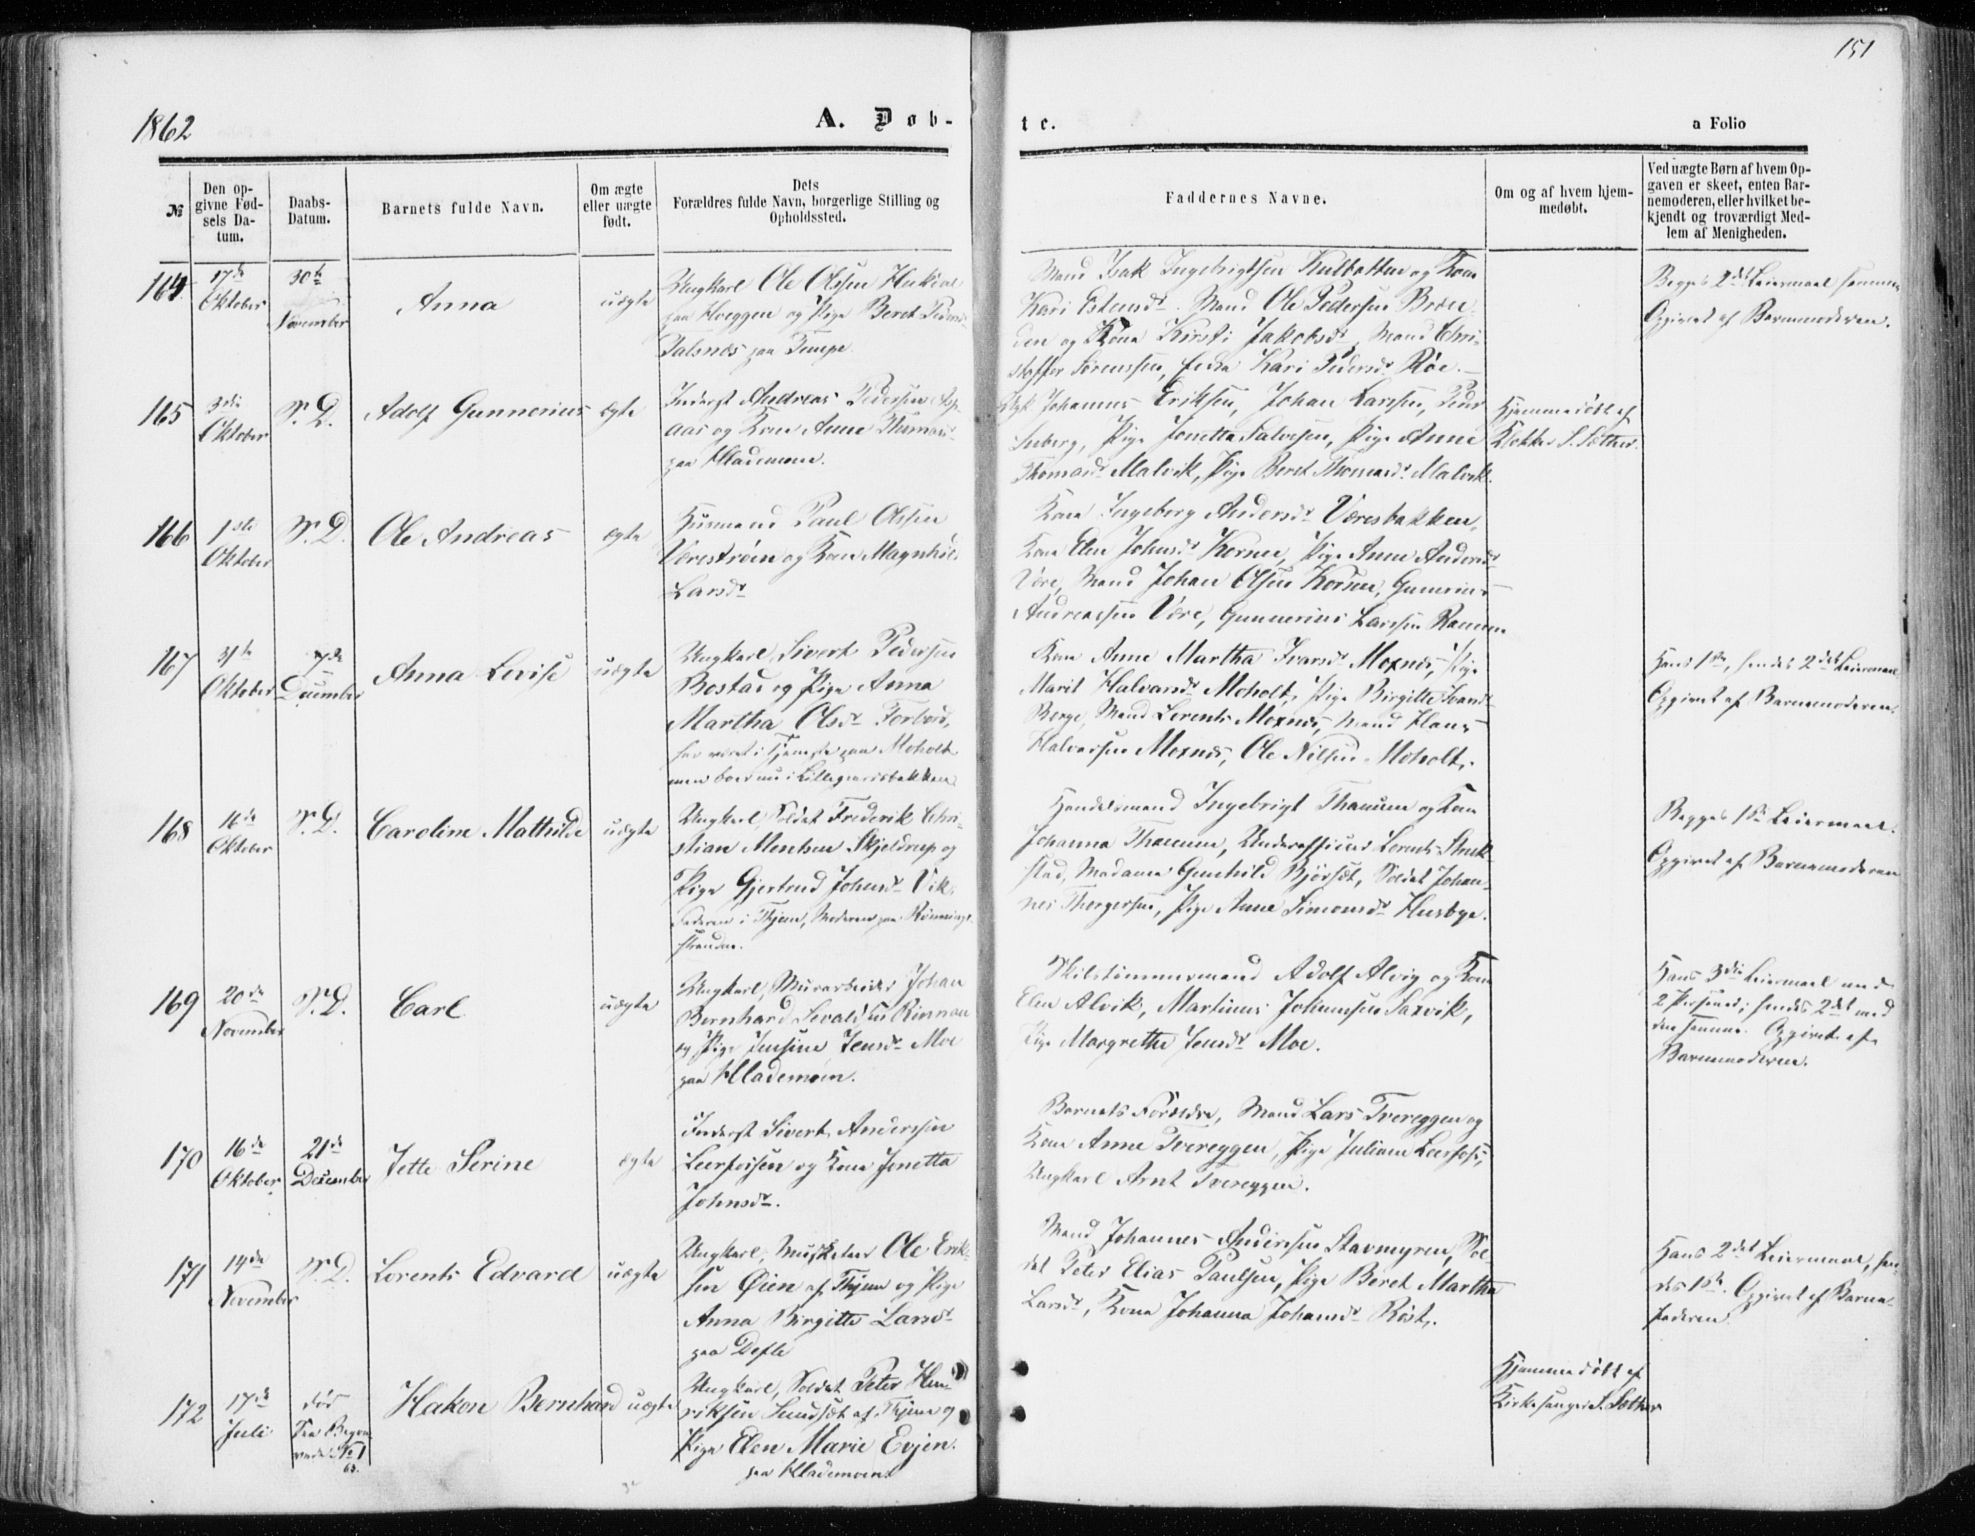 151
1862
A. Døb-
te.
a Folio
№
Den op-
givne Fød-
sels Da-
tum.
Daabs-
Datum.
Barnets fulde Navn.
Om ægte
eller uægte
født.
Dets
Forældres fulde Navn, borgerlige Stilling og
Opholdssted.
Faddernes Navne.
Om og af hvem hjem-
medøbt.
Ved uægte Børn af hvem Op-
gaven er skeet, enten Bar-
nemoderen, eller hvilket be-
kjendt og troværdigt Med-
lem af Menigheden.
164
17de
Oktober
30te
November
Anna
uægte
Ungkarl Ole Olssen
paa og Pige Beret Peders-
Talsnæs paa Tempe
Mand Isak Ingebrigtsen Kulbotten og Kone
Kari Estensdr. Mand Ole Pedersen Bræn-
den og Kone Kirsti Jakobsdr, Mand Chri-
stoffer Sørenssen, Enke Kari Pedersdr Röe.
Begges 2det Leiermaal sammen
Opgivet af Barnemoderen.
165
3die
Oktober
S. D.
Adolf Gunnerius
ægte
Inderst Andreas Pedersen
aas og Kone Anne Thomasdr
paa Hlademoen.
Johannes Eriksen, Johan Larssen,
Pige Jonetta Salvesen, Pige Anne
Thomasdr Malvik, Pige Beret Thomasdr Malvik.
Hjemmedöbt af
Klokker S. Sæther.
166
1ste
Oktober
S. D.
Ole Andreas
ægte
Husmand Paul Olssen
Væreströen og Kone Magnhil
Larsdr
Kone Ingeborg Andersdr Væresbakken,
Kone Elen Johnsdr Kornen, Pige Anne Andersdr
Være, Mand Johan Olsen Kornen, Gunerius
Andreassen Være, Gunnerius Larssen Ranem
167
31te
Oktober
7de
December
Anna Lovise
uægte
Ungkarl Sivert Pedersen
Bostad og Pige Anna
Martha Olsdr Forbord,
har været i Tjeneste paa Moholt
men boer nu i Lillegaardsbakken
Kone Anne Martha Ivarsdr Moxnes, Pige
Marit Halvorsdr Moholt, Pige Birgitte Ivarsdr
Berge, Mand Lorents Moxnes, Mand Hans
Halvorsen Moxnes, Ole Nilsen Moholt.
Hans 1ste, hendes 2det Leiermaal
Opgivet af Barnemoderen.
168
16de
Oktober
S. D.
Caroline Mathilde
uægte
Ungkarl Soldat Frederik Chri-
stian Mentsen Skjeldrup og
Pige Gjertrud Johnsdr Vik.
Faderen i Thjem, Moderen paa Rønnings-
stranden.
Handelsmand Ingebrigt Thaunm og Kone
Johanna Thaunm, Underofficeer Lorents
stad, Madame Gunhild Björset, Soldat Johan-
nes Thorgersen, Pige Anne Simonsdr Husbye.
Begges 1ste Leiermaal.
Opgivet af Barnemoderen
169
20de
November
S. D.
Carl
uægte
Ungkarl, Murarbeider Johan
Bernhard Sevaldsen Rinnan
og Pige Jensine Jensdr Moe
paa Hlademoen.
Skilstømmermand Adolf Alvig og Kone
Elen Alvik, Martinus Johannsen Saxvik,
Pige Margrethe Jensdr Moe.
Hans 3die Leiermaal med
2 Personer; hendes 2det med
den samme. Opgivet af
Barnemoderen.
170
16de
Oktober
21de
December
Jette Serine
ægte
Inderst Sivert Anderssen
Leerfossen og Kone Jonetta
Johnsdr.
Barnets Forældre, Mand Lars Tvereggen og
Kone Anne Tvereggen, Pige Juliane Leerfoss,
Ungkarl Arnt Tvereggen.
171
14de
November
S. D.
Lorents Edvard
uægte
Ungkarl, Musketeer Ole Erik-
sen Øien af Thjem og Pige
Anna Birgitte Larsdr
paa Devle
Mand Johannes Anderssen Stavmyren, Sol-
dat Peter Elias Paulsen, Pige Beret Martha
Larsdr, Kone Johanna Johansdr Röst.
Hans 2det Leiermaal, hen-
des 1ste. Opgivet af Barne-
faderen.
172
17de
Juli
död
See Begra-
vede No 1
63.
Hakon Bernhard
uægte
Ungkarl, Soldat Peter Hen-
riksen Sundset af Thjem og
Pige Elen Marie Evjen.
paa Hlademoen.
Hjemmedöbt af
Kirkesanger S. Sæther